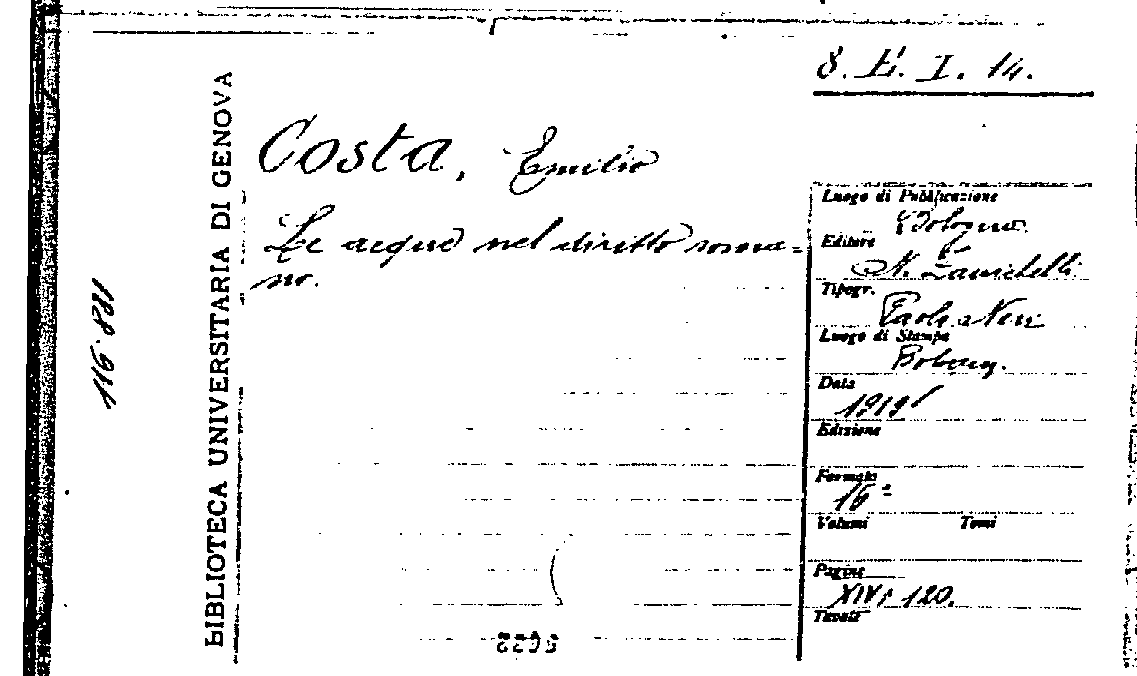 8. E. I. 14.
BIBLIOTECA UNIVERSITARIA DI GENOVA
116.881
Costa, Emilio
Le acque nel diritto roma=
no.
Luogo di Pubblicazione
Bologna.
Editore
N. Zanichelli.
Tipogr.
Paolo Neri
Luogo di Stampa
Bologn.
Data
1919
Edizione
Formato
16º
Volumi Tomi
Pagine
XIV, 120.
Tavole